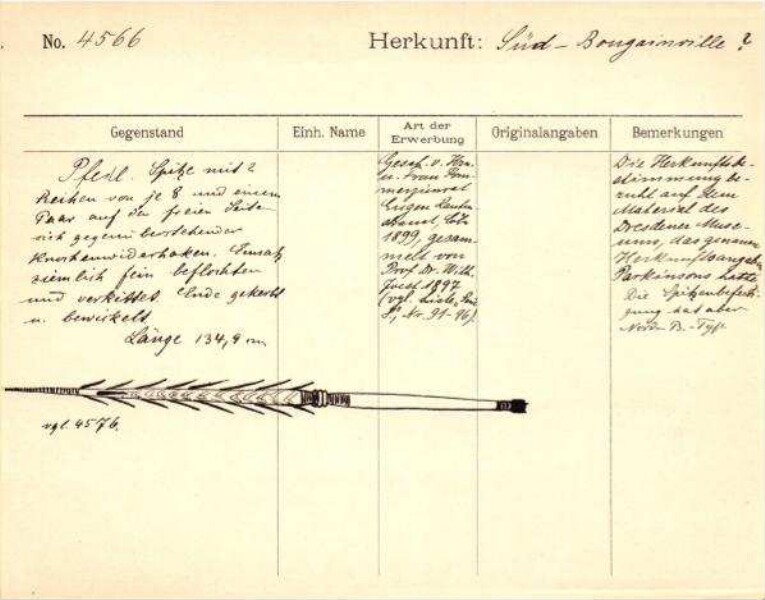 No. 4566
Herkunft: Süd-Bougainville ?
Gegenstand
Einh. Name
Art der Erwerbung
Originalangaben
Bemerkungen
Pfeil. Spitze mit 2
Reihen von je 8 und einem
Paar auf den freien Seiten
sich gegenüberstehender
Knochenwiderhaken. Einsatz
ziemlich fein beflochten
und verkittet. Ende gekerbt
u. bewickelt
Länge 134,9 cm
Gesch. v. Hrn.
u. Frau Kom-
merzienrat
Eugen Rauten-
strauch, Cöln
1899, gesam-
melt von
Prof. Dr. Wilh.
Joest 1897
(vgl. Liste,
Nr. 91-96).
Die Herkunftsbe-
stimmung be-
ruht auf dem
Material des
Dresdener Muse-
ums, das genaue
Herkunftsangaben
Parkinsons hatte
Die Spitzenbefesti-
gung hat aber
Nord-B.-Typ
vgl. 4576.